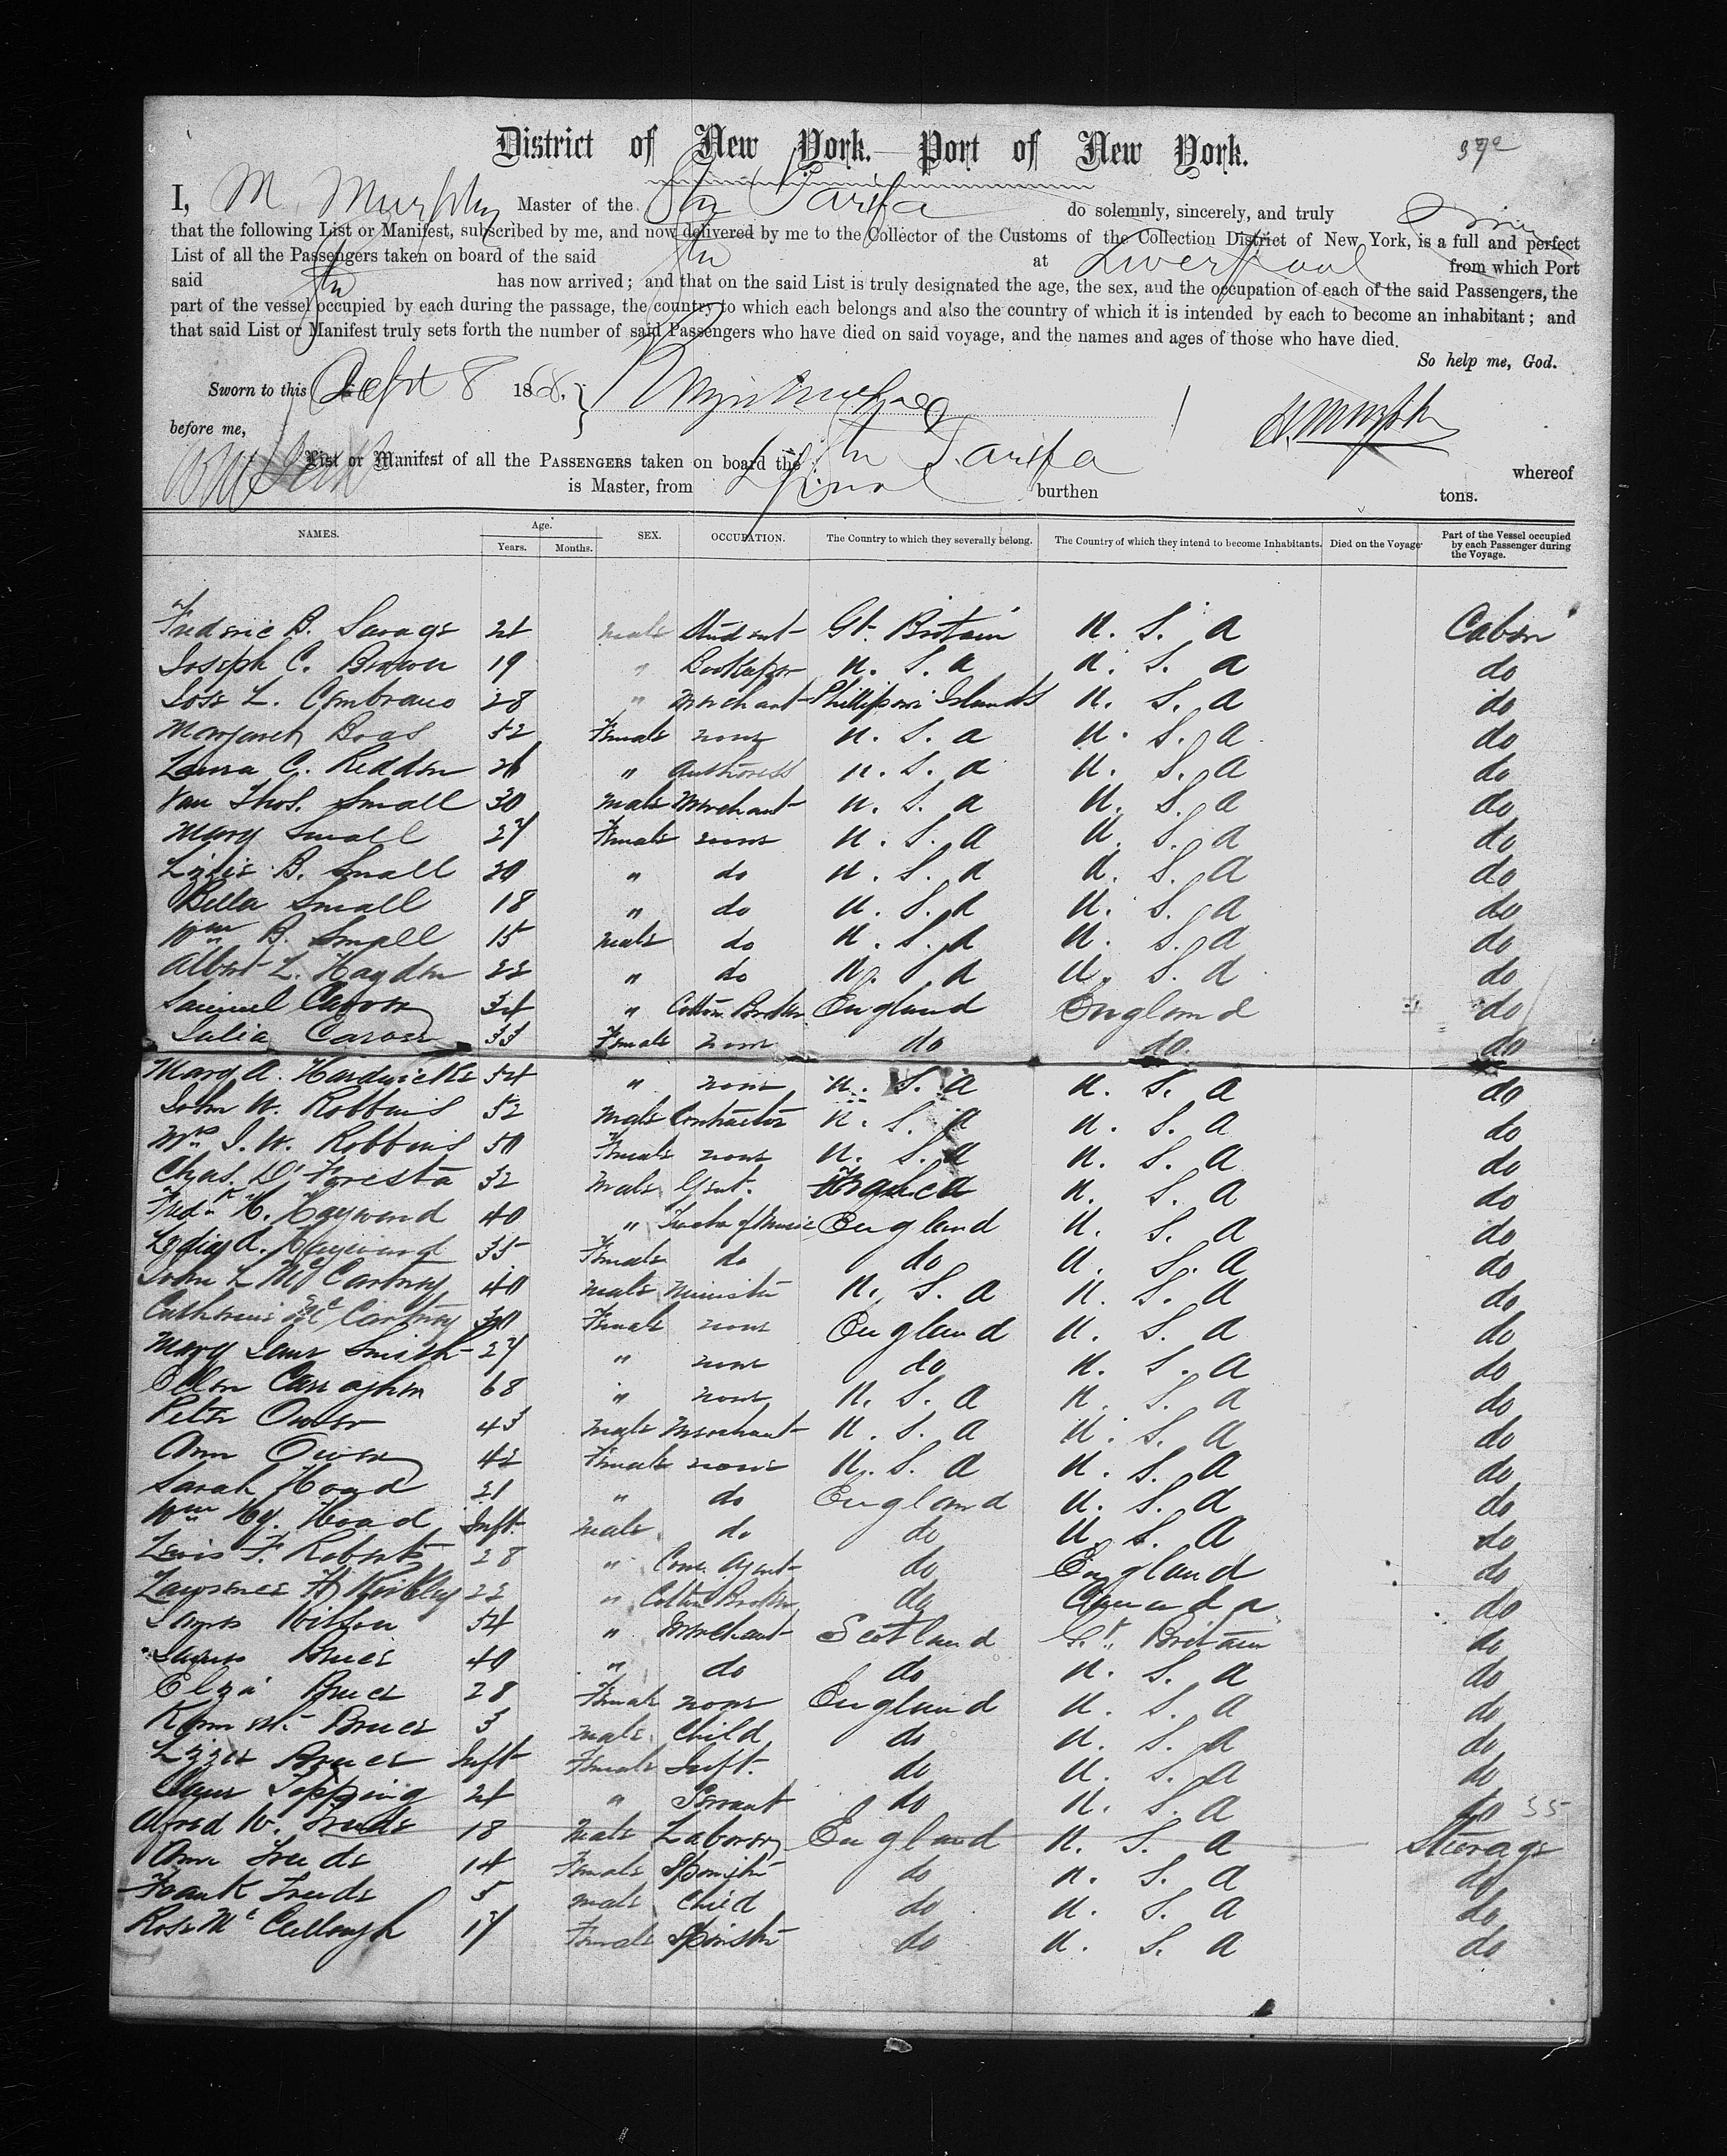 District of New York. Port of New York.
I, M. Murphy Master of the Str Tarifa do solemnly, sincerely, and truly
that the following List or Manifest, subscribed by me, and now delivered by me to the Collector of the Customs of the Collection District of New York, is a full and perfect
List of all the Passengers taken on board of the said Str at Liverpool from which Port
said Str has now arrived; and that on the said List is truly designated the age, the sex, and the occupation of each of the said Passengers, the
part of the vessel occupied by each during the passage, the country to which each belongs and also the country of which it is intended by each to become an inhabitant; and
that said List or Manifest truly sets forth the number of said Passengers who have died on said voyage, and the names and ages of those who have died.
So help me, God.
Sworn to this Sept 8 1868.
before me,
M. Murphy
List or Manifest of all the PASSENGERS taken on board the Str Tarifa whereof
is Master, from L'pool burthen tons.
NAMES. Age. Years. Months. SEX. OCCUPATION. The Country to which they severally belong. The Country of which they intend to become Inhabitants. Died on the Voyage Part of the Vessel occupied by each Passenger during the Voyage.
Frederic B. Savage 21 male Student Gt. Britain U. S. A Cabin
Joseph C. Brown 19 " Bookkeeper U. S. A U. S. A do
Jose L. Cembrano 28 " Merchant Phillipine Islands U. S. A do
Margaret Boas 52 Female none U. S. A U. S. A do
Laura C. Redden 26 " Authoress U. S. A U. S. A do
Van Thos. Small 30 male Merchant U. S. A U. S. A do
Mary Small 27 Female none U. S. A U. S. A do
Lizzie B. Small 20 " do U. S. A U. S. A do
Bella Small 18 " do U. S. A U. S. A do
Wm B. Small 15 male do U. S. A U. S. A do
Albert L. Hayden 22 " do U. S. A U. S. A do
Samuel Carson 34 " Cotton Broker England England do
Julia Carson 33 Female none do do do
Mary A. Hardwicke 54 " none U. S. A U. S. A do
John W. Robbins 52 male Contractor U. S. A U. S. A do
Mrs J. W. Robbins 50 Female none U. S. A U. S. A do
Chas. D' Foresta 32 male Gent. U. S. A do
Fredk H. Hayward 40 " Teacher of Music England U. S. A do
Lydia A. Hayward 35 Female do do U. S. A do
John L McCartney 40 male Minister U. S. A U. S. A do
Catherine McCartney 30 Female none England U. S. A do
Mary Jane Smith 27 " none do U. S. A do
Ellen Carraghen 68 " none U. S. A U. S. A do
Peter Owen 43 male Merchant U. S. A U. S. A do
Ann Owen 42 Female none U. S. A U. S. A do
Sarah Hoad 21 " do England U. S. A do
Wm Hy. Hoad Inft. male do do U. S. A do
Lewis F. Roberts 28 " Com. Agent do England do
Lawrence H Kirkley 22 " Cotton Broker do Canada do
James Wilson 54 " Merchant Scotland Gt. Britain do
James Bruce 40 " do do U. S. A do
Eliza Bruce 28 Female none England U. S. A do
Bruce 3 male Child do U. S. A do
Lizzie Bruce Inft Female Inft. do U. S. A do
Topping 21 " Servant do U. S. A do 35
Alfred W. 18 male Laborer England U. S. A Steerage
Ann 14 Female Spinster do U. S. A do
Frank 5 male Child do U. S. A do
Rose McCullough 17 Female Spinster do U. S. A do